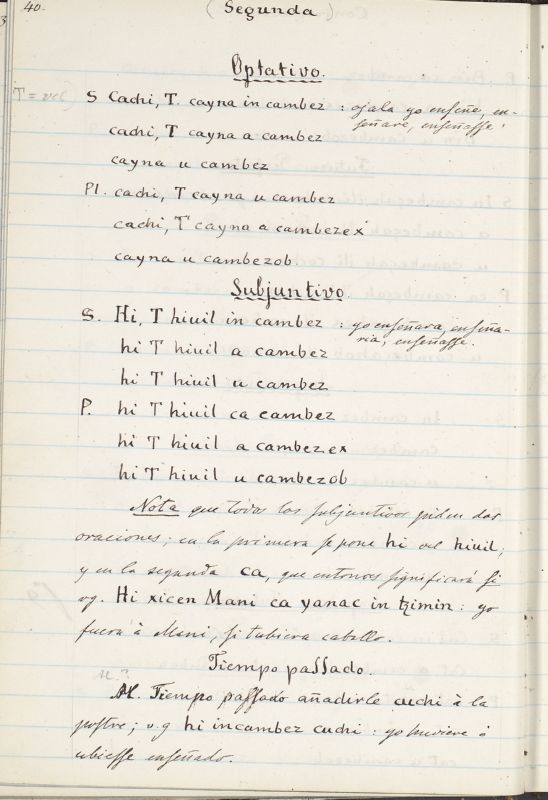 40.
(Segunda)
Optativo.
T = vel)
S Cachi, T. cayna in cambez : ojala yo enseñe, en-
señare, enseñasse.
cachi, T cayna a cambez
cayna u cambez
Pl. cachi, T cayna u cambez
cachi, T cayna a cambezex
cayna u cambezob
Subjuntivo.
S. Hi, T hiuil in cambez : yo enseñara, enseña-
ria, enseñasse.
hi T hiuil a cambez
hi T hiuil u cambez
P. hi T hiuil ca cambez
hi T hiuil a cambezex
hi T hiuil u cambezob
Nota que todos los subjuntivos piden dos
oraciones; en la primera se pone hi vel hiuil;
y en la segunda ca, que entonces significará si
vg. Hi xicen Mani ca yanac in tzimin: yo
fuera à Mani, si tubiera caballo.
Tiempo passado.
Al.?
Al. Tiempo passado añadirle cuchi à la
postre; v.g hi incambez cuchi : yo huviere ó
ubiesse enseñado.